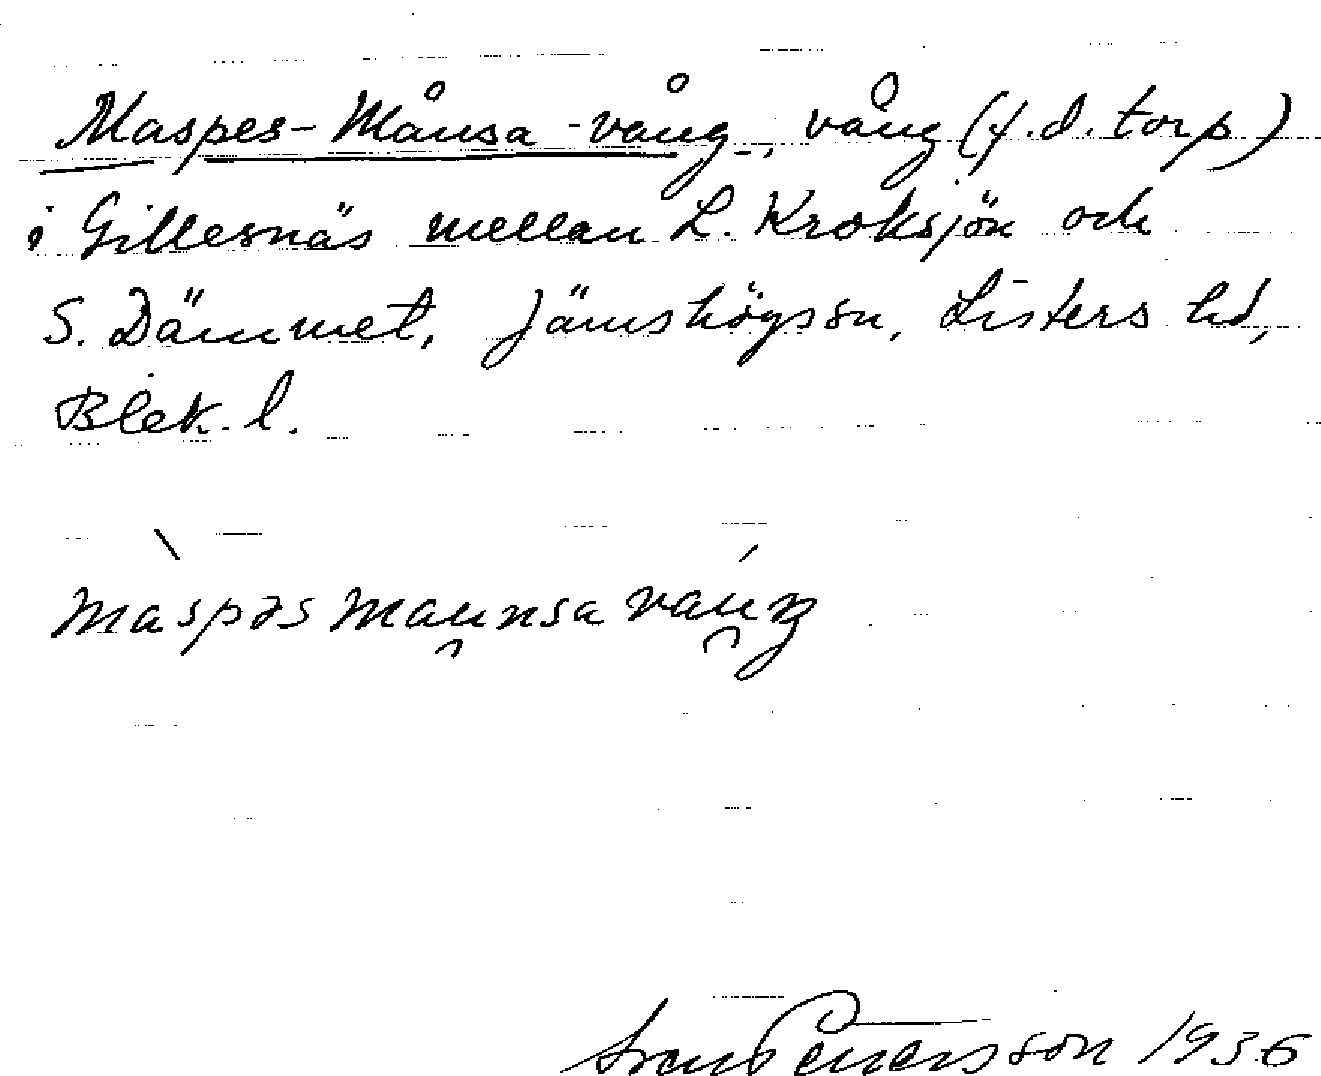 Maspes-Månsa-vång, vång (f.d. torp)
i Gillesnäs mellan L. Kroksjön och
S. Dämmet, Jämshögs sn, Listers hd,
Blek. l.
màspəs mau̯nsa váu̯ŋ
1936